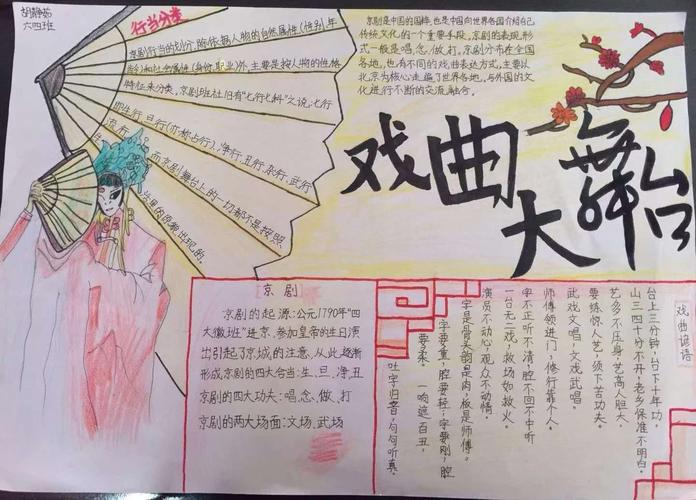 胡静茹
六四班
行当分类
京剧行当的划分,除依据人物的自然属性(性别、年
龄)和社会属性(身份、职业)外,主要是按人物的性格
特征来分类。京剧班社旧有“七行七科”之说:七行
即生行、旦行(亦称占行)、净行、丑行、杂行、武行、
流行。
而京剧舞台上的一切都不是按照
生活里的原貌出现的。
京剧是中国的国粹,也是中国向世界各国介绍自己
传统文化的一个重要手段,京剧的表现形
式一般是唱、念、做、打。京剧分布在全国
各地,也有不同的戏曲表达方式,主要以
北京为核心走遍了世界各地,与外国的文
化进行不断的交流,融合。
戏曲大舞台
京剧
京剧的起源:公元1790年“四
大徽班”进京,参加皇帝的生日演
出引起了京城的注意,从此逐渐
形成京剧的四大行当:生、旦、净、丑
京剧的四大功夫:唱、念、做、打
京剧的两大场面:文场、武场
戏曲谚语
台上三分钟,台下十年功。
山三四十分不开,老乡保准不明白。
艺多不压身,艺高人胆大。
要练惊人艺,须下苦功夫。
武戏文唱,文戏武唱。
师傅领进门,修行靠个人。
字不正听不清,腔不回不中听
一台无二戏,救场如救火。
演员不动心,观众不动情。
字是骨头韵是肉,板是师傅。
字要重,腔要轻;字要刚,腔
要柔。
一响遮百丑,
吐字归音,句句听真。